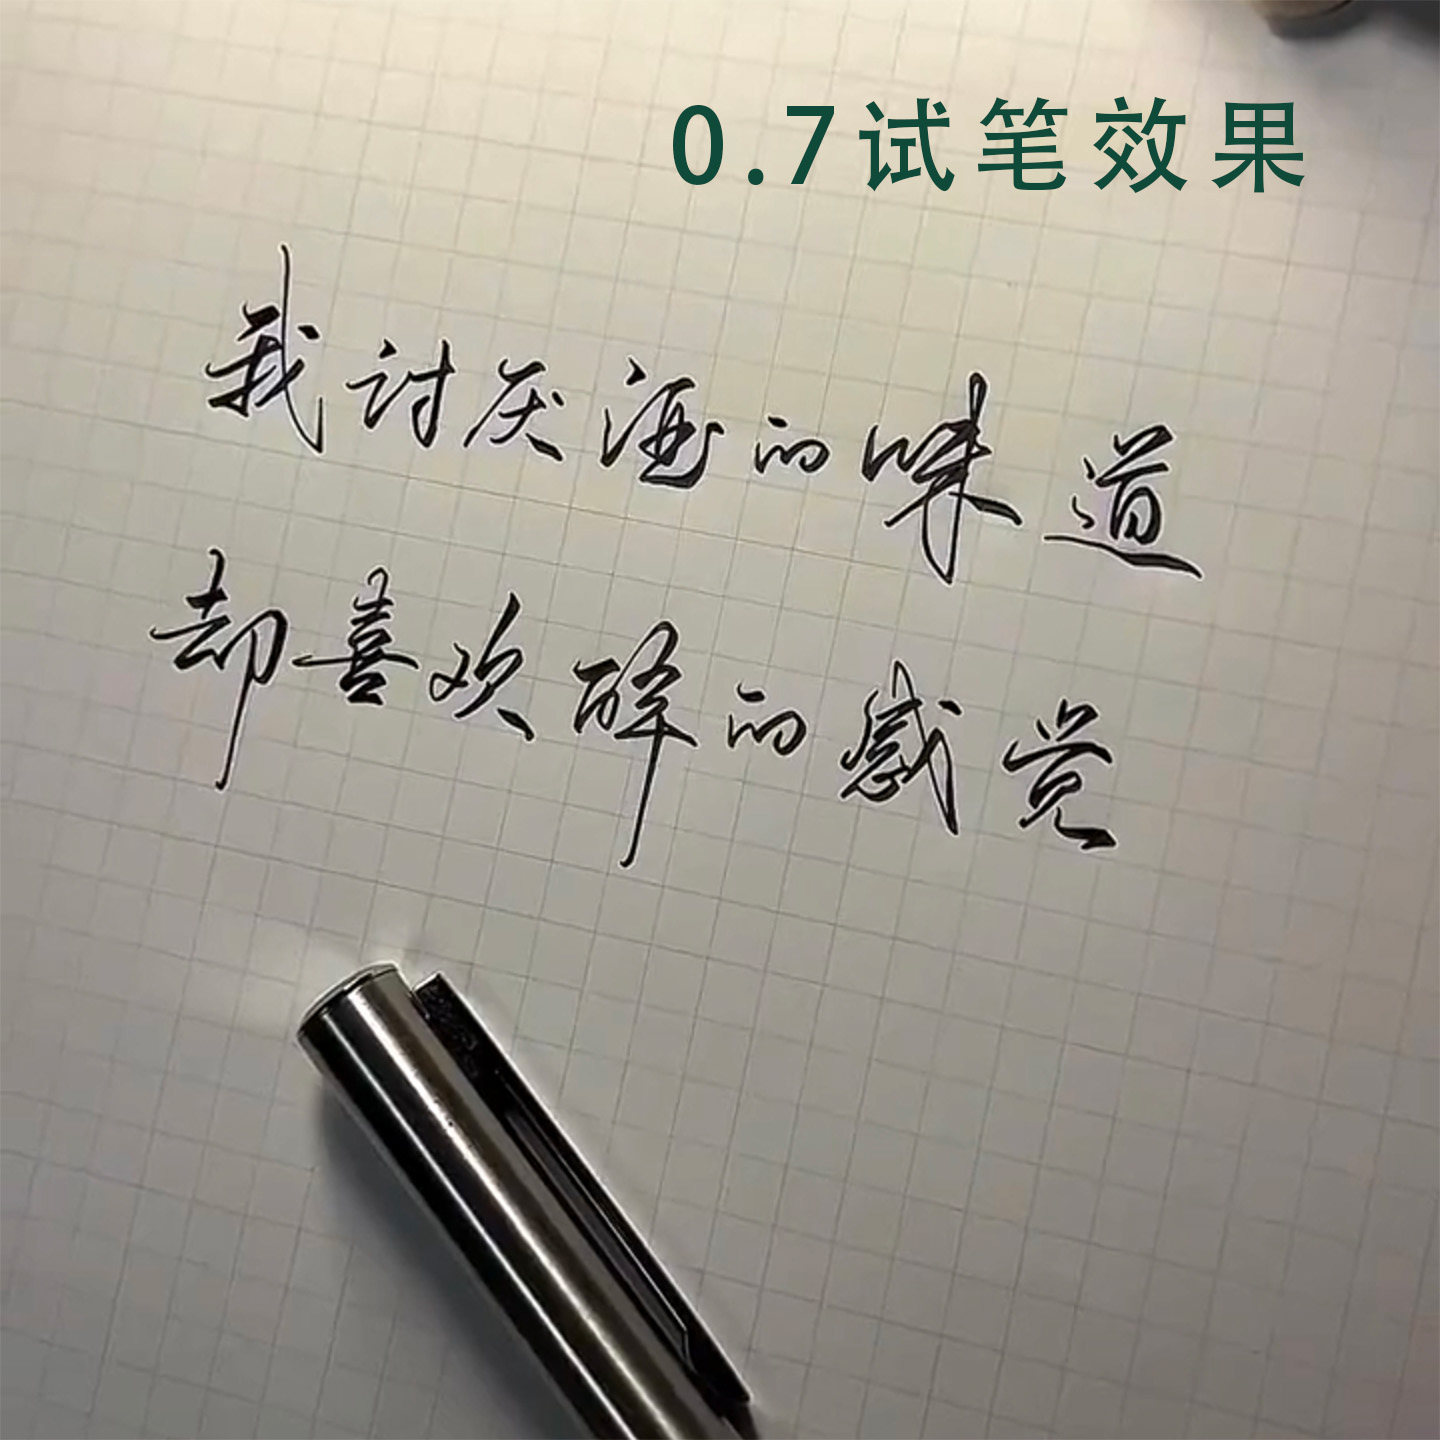 0.7试笔效果
我讨厌酒的味道
却喜欢醉的感觉